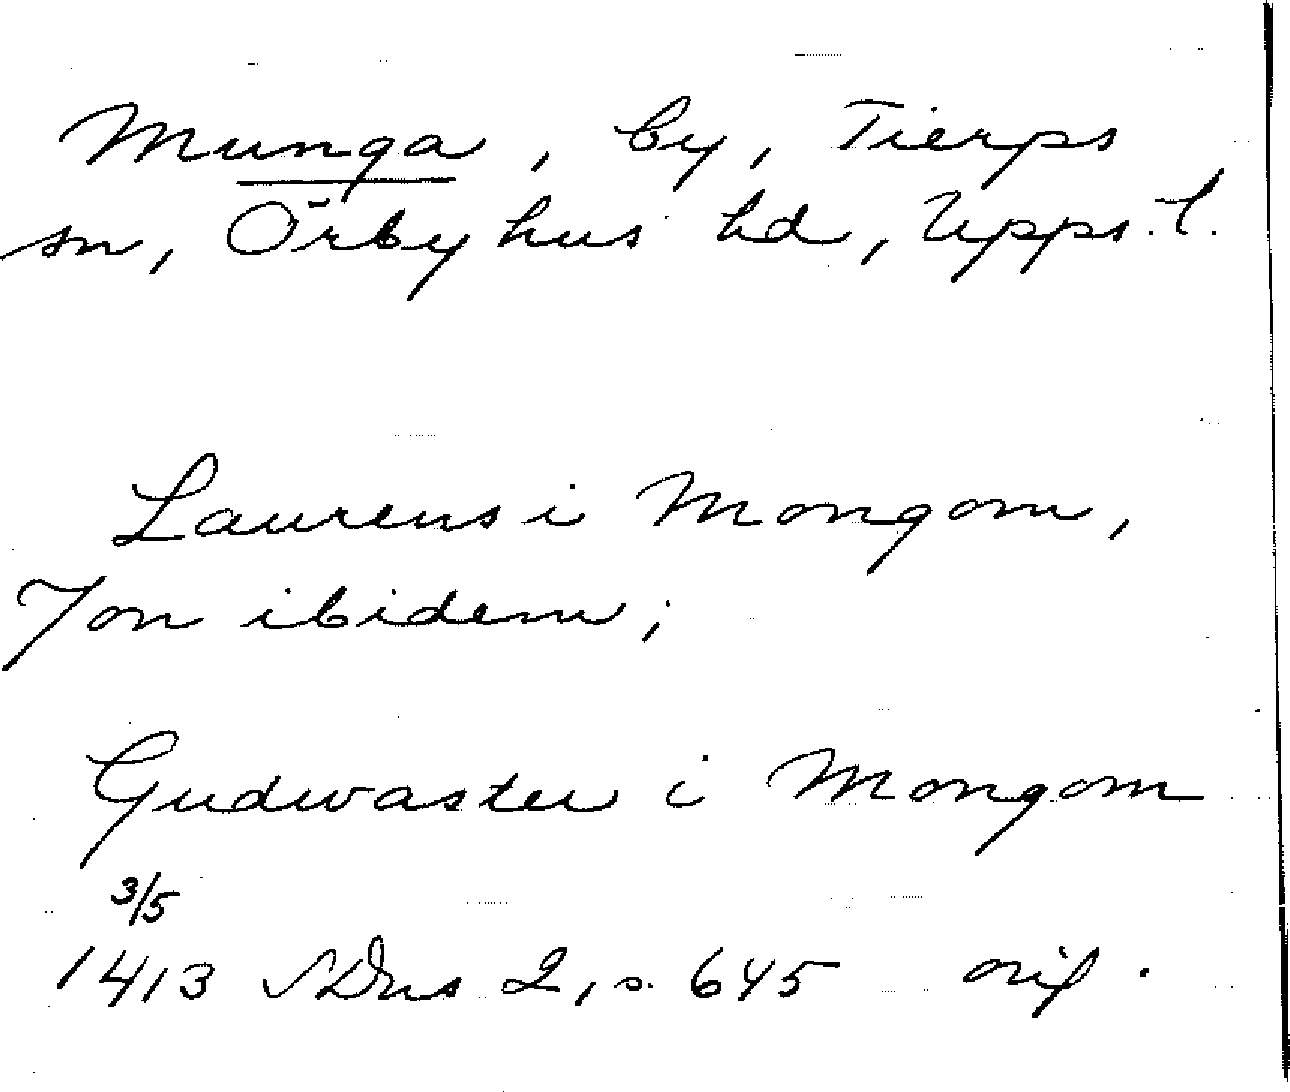 Munga, by, Tierps
sn, Örbyhus hd, Upps. l.
Laurens i Mongom,
Jon ibidem;
Gudwaster i Mongom
3/5
1413 SDns 2, s. 645 orig.